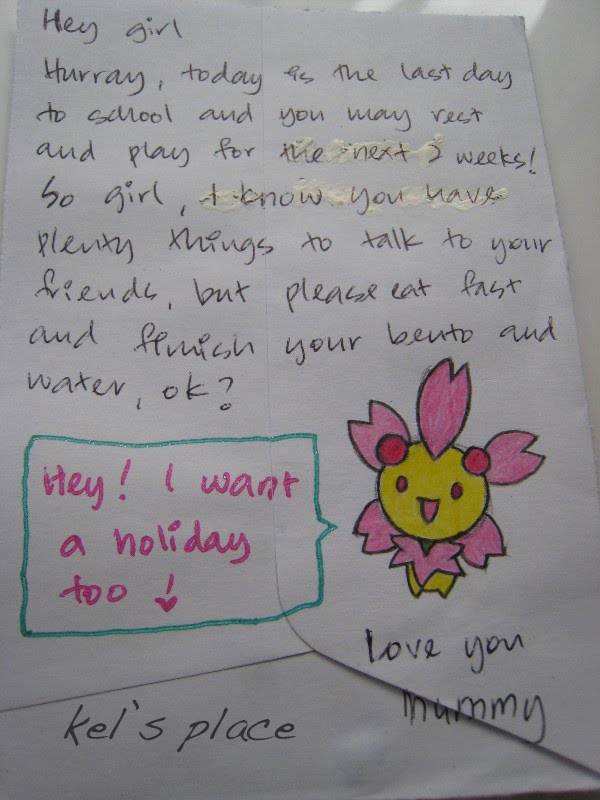 Hey girl
Hurray, today is the last day
to school and you may rest
and play for the next 2 weeks!
So girl, I know you have
plenty things to talk to your
friends, but please eat fast
and finish your bento and
water, ok?
Hey! I want
a holiday
too!
Love you
Mummy
kel's place